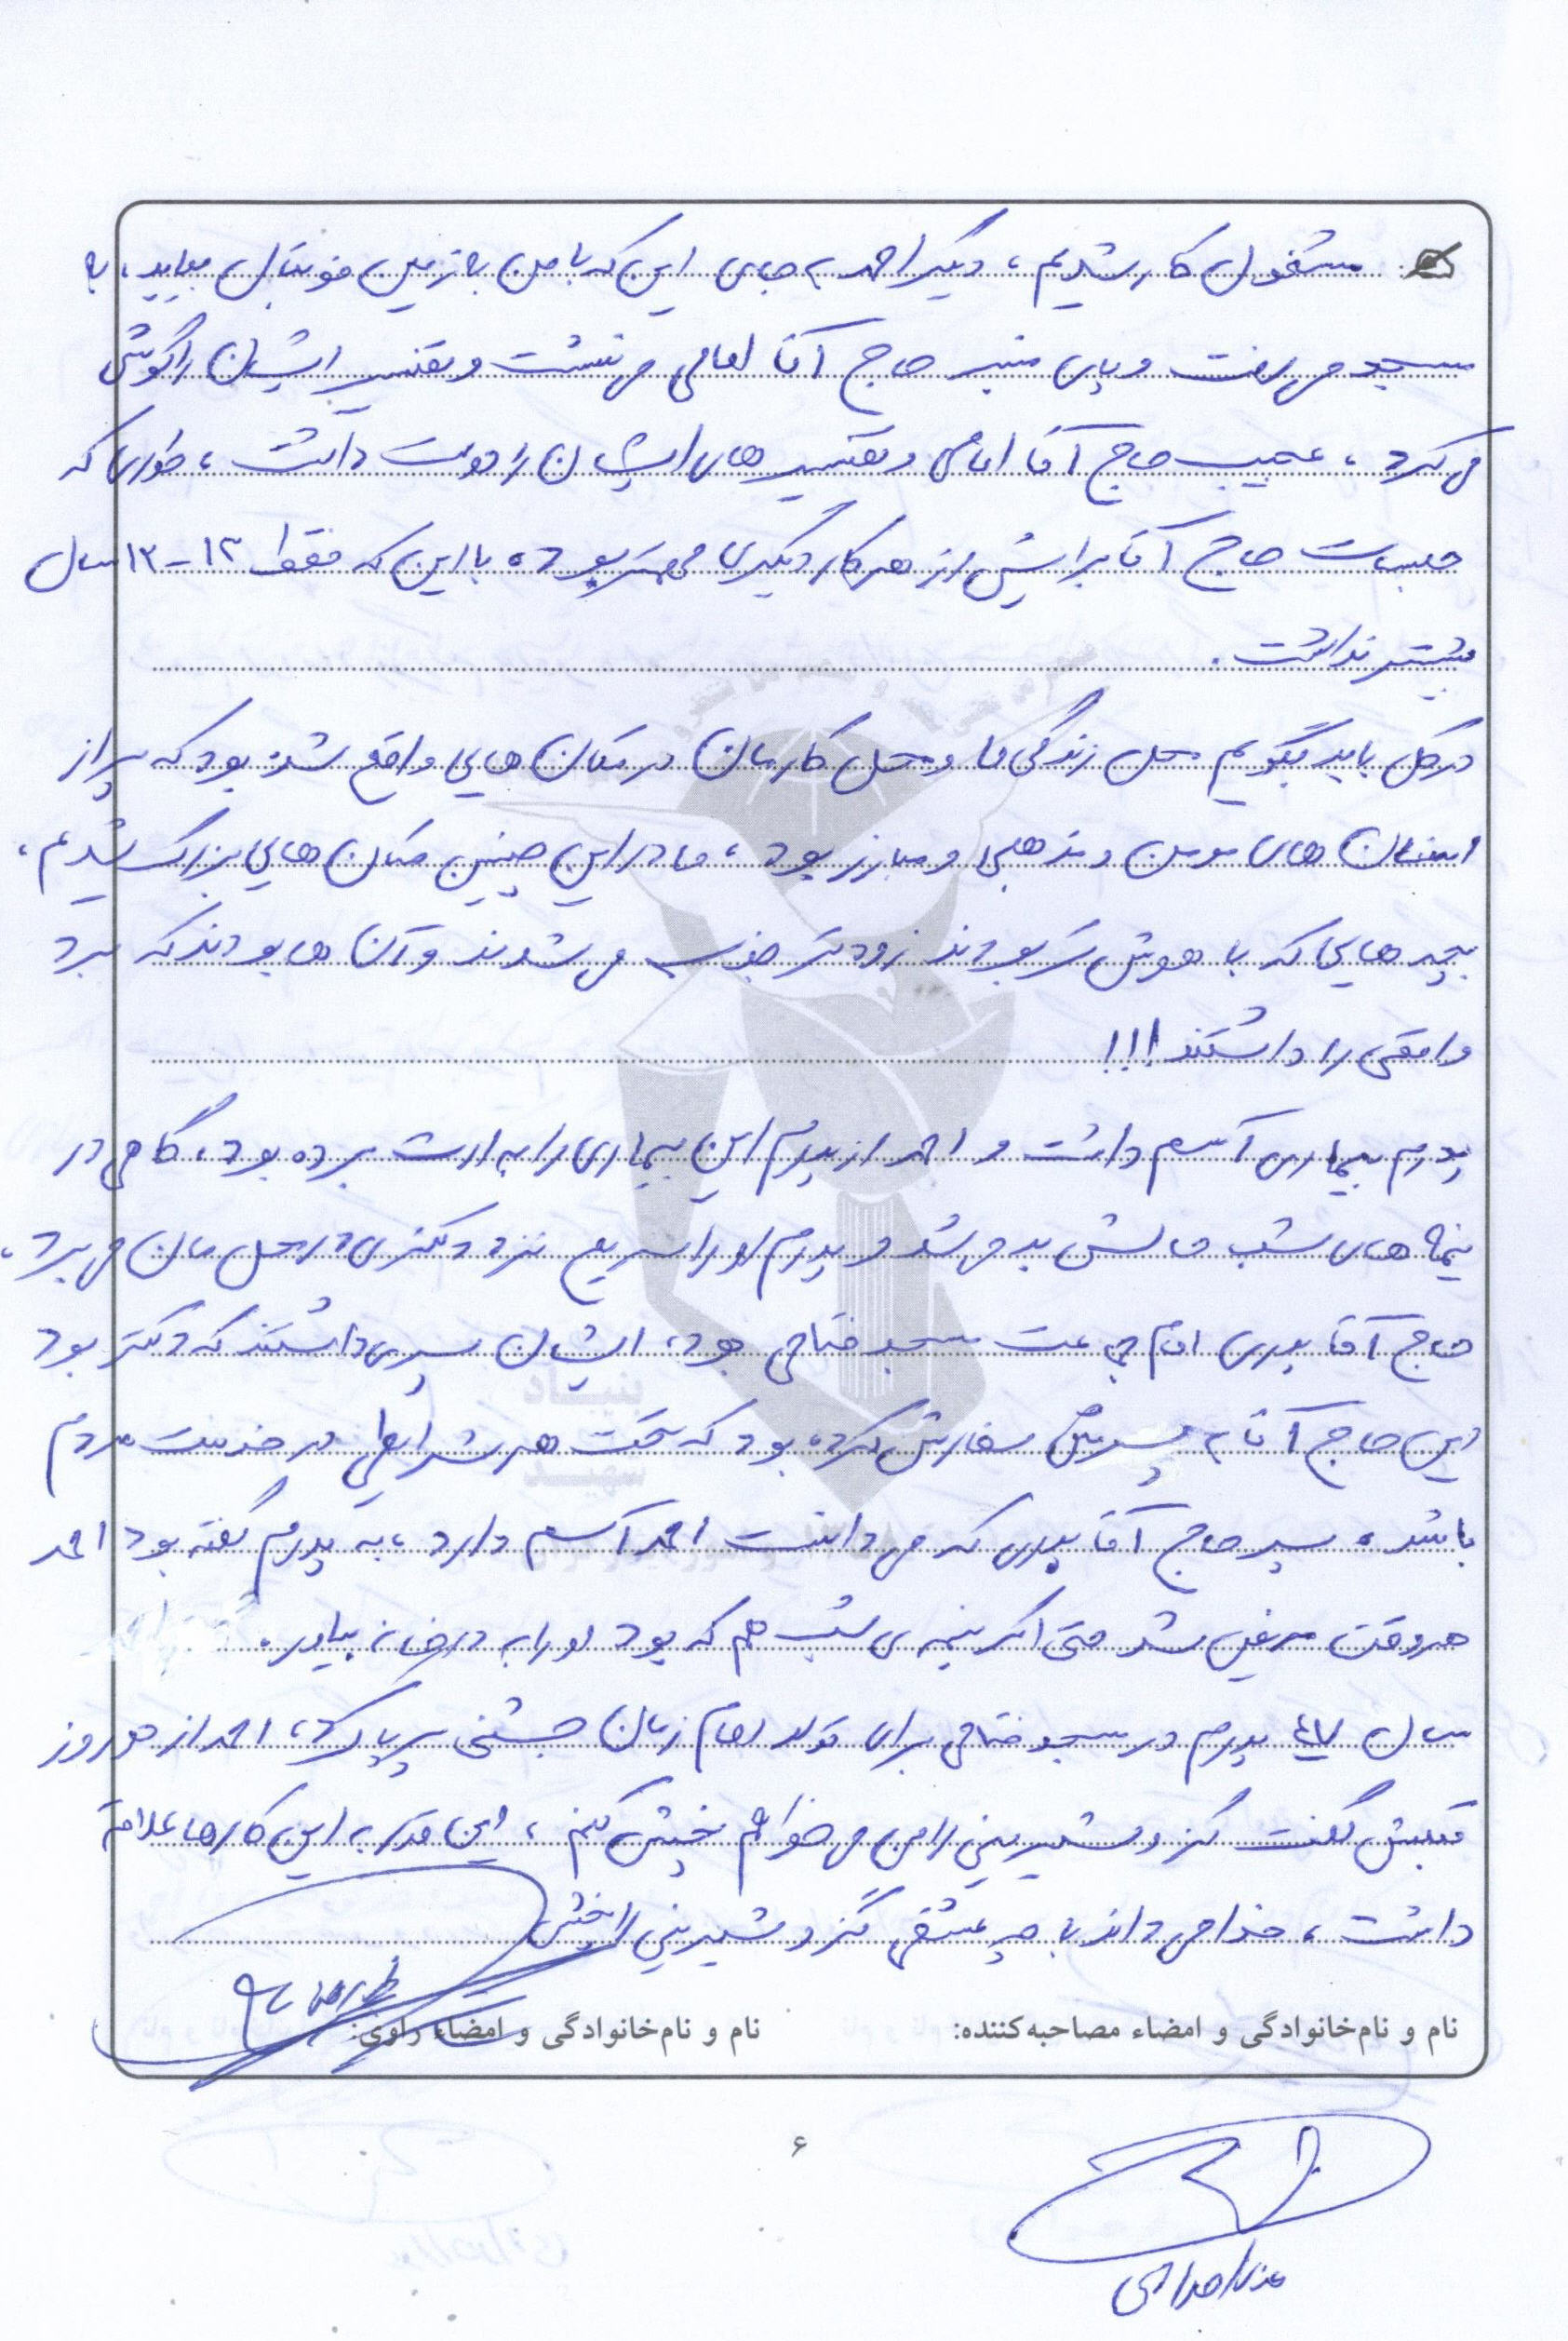 مشغول کار شدیم، دیگر احمد به جای این که با من به زمین فوتبال بیاید، به
مسجد می رفت و پای منبر حاج آقا امامی می نشست و تفسیر ایشان را گوش
می کرد، عجیب حاج آقا امامی و تفسیرهای ایشان را دوست داشت، طوری که
جلسات حاج آقا برایش از هر کار دیگری مهمتر بود، با این که فقط ۱۲-۱۳ سال
بیشتر نداشت.
در کل باید بگویم محل زندگی ما و محل کارمان در مکان هایی واقع شده بود که پر از
انسان های مومن و مذهبی و مبارز بود، ما در این چنین مکان هایی بزرگ شدیم،
بچه هایی که با هوش تر بودند زودتر جذب می شدند و آن ها بودند که برد
واقعی را داشتند!!!
پدرم بیماری آسم داشت و احمد از پدرم این بیماری را به ارث برده بود، گاهی در
نیمه های شب حالش بد می شد و پدرم او را سریع نزد دکتری در محل مان می برد،
حاج آقا بدری امام جماعت مسجد فتاحی بود، ایشان پسری داشتند که دکتر بود
این حاج آقا به پسرش سفارش کرده بود که تحت هر شرایطی در خدمت مردم
باشد، پسر حاج آقا بدری که می دانست احمد آسم دارد، به پدرم گفته بود احمد
هر وقت مریض شد حتی اگر نیمه ی شب هم که بود او را به در خانه بیاور.
سال ۴۷ پدرم در مسجد فتاحی برای تولد امام زمان جشنی بر پا کرد، احمد از دو روز
قبلش گفت گز و شیرینی را من می خواهم پخش کنم، این قدر به این کارها علاقه
داشت، خدا می داند با چه عشقی گز و شیرینی را پخش
نام و نام‌خانوادگی و امضاء مصاحبه‌کننده: نام و نام‌خانوادگی و امضاء راوی:
۶
بنیاد
شهید